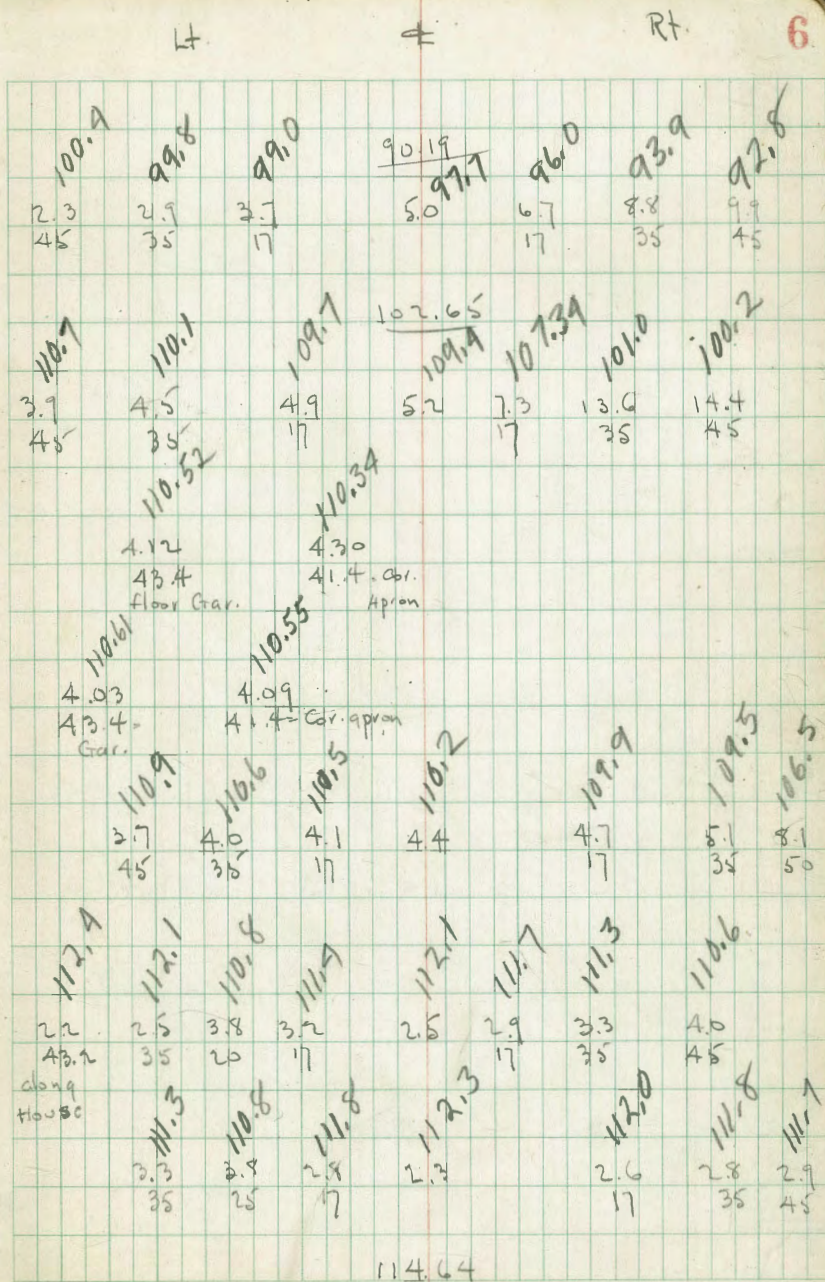 Lt ℄ Rt. 6
90.19
100.4 99.8 99.0 97.7 96.0 93.9 92.8
2.3 2.9 3.7 5.0 6.7 8.8 9.9
45 35 17 17 35 45
102.65
110.7 110.1 109.7 109.4 107.34 101.0 100.2
3.9 4.5 4.9 5.2 7.3 13.6 14.4
45 35 17 17 35 45
110.52 110.34
4.12 4.30
43.4 41.4 - Cor.
floor Gar. Apron
110.61 110.55
4.03 4.09
43.4 - 41.4 = Cor. apron
Gar.
110.9 110.6 110.5 110.2 109.9 109.5 106.5
3.7 4.0 4.1 4.4 4.7 5.1 8.1
45 35 17 17 35 50
112.4 112.1 110.8 111.4 112.1 111.7 111.3 110.6
2.2 2.5 3.8 3.2 2.5 2.9 3.3 4.0
43.2 35 20 17 17 35 45
along
House
111.3 110.8 111.8 112.3 112.0 111.8 111.7
3.3 3.8 2.8 2.3 2.6 2.8 2.9
35 25 17 17 35 45
114.64